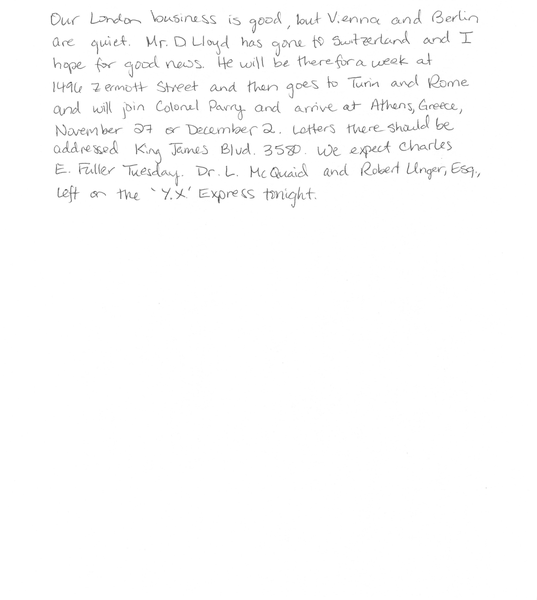 Our London business is good, but Vienna and Berlin
are quiet. Mr. D Lloyd has gone to Switzerland and I
hope for good news. He will be there for a week at
1496 Zermott Street and then goes to Turin and Rome
and will join Colonel Parry and arrive at Athens, Greece,
November 27 or December 2. Letters there should be
addressed King James Blvd. 3580. We expect Charles
E. Fuller Tuesday. Dr. L. McQuaid and Robert Unger, Esq.,
left on the 'Y.X' Express tonight.